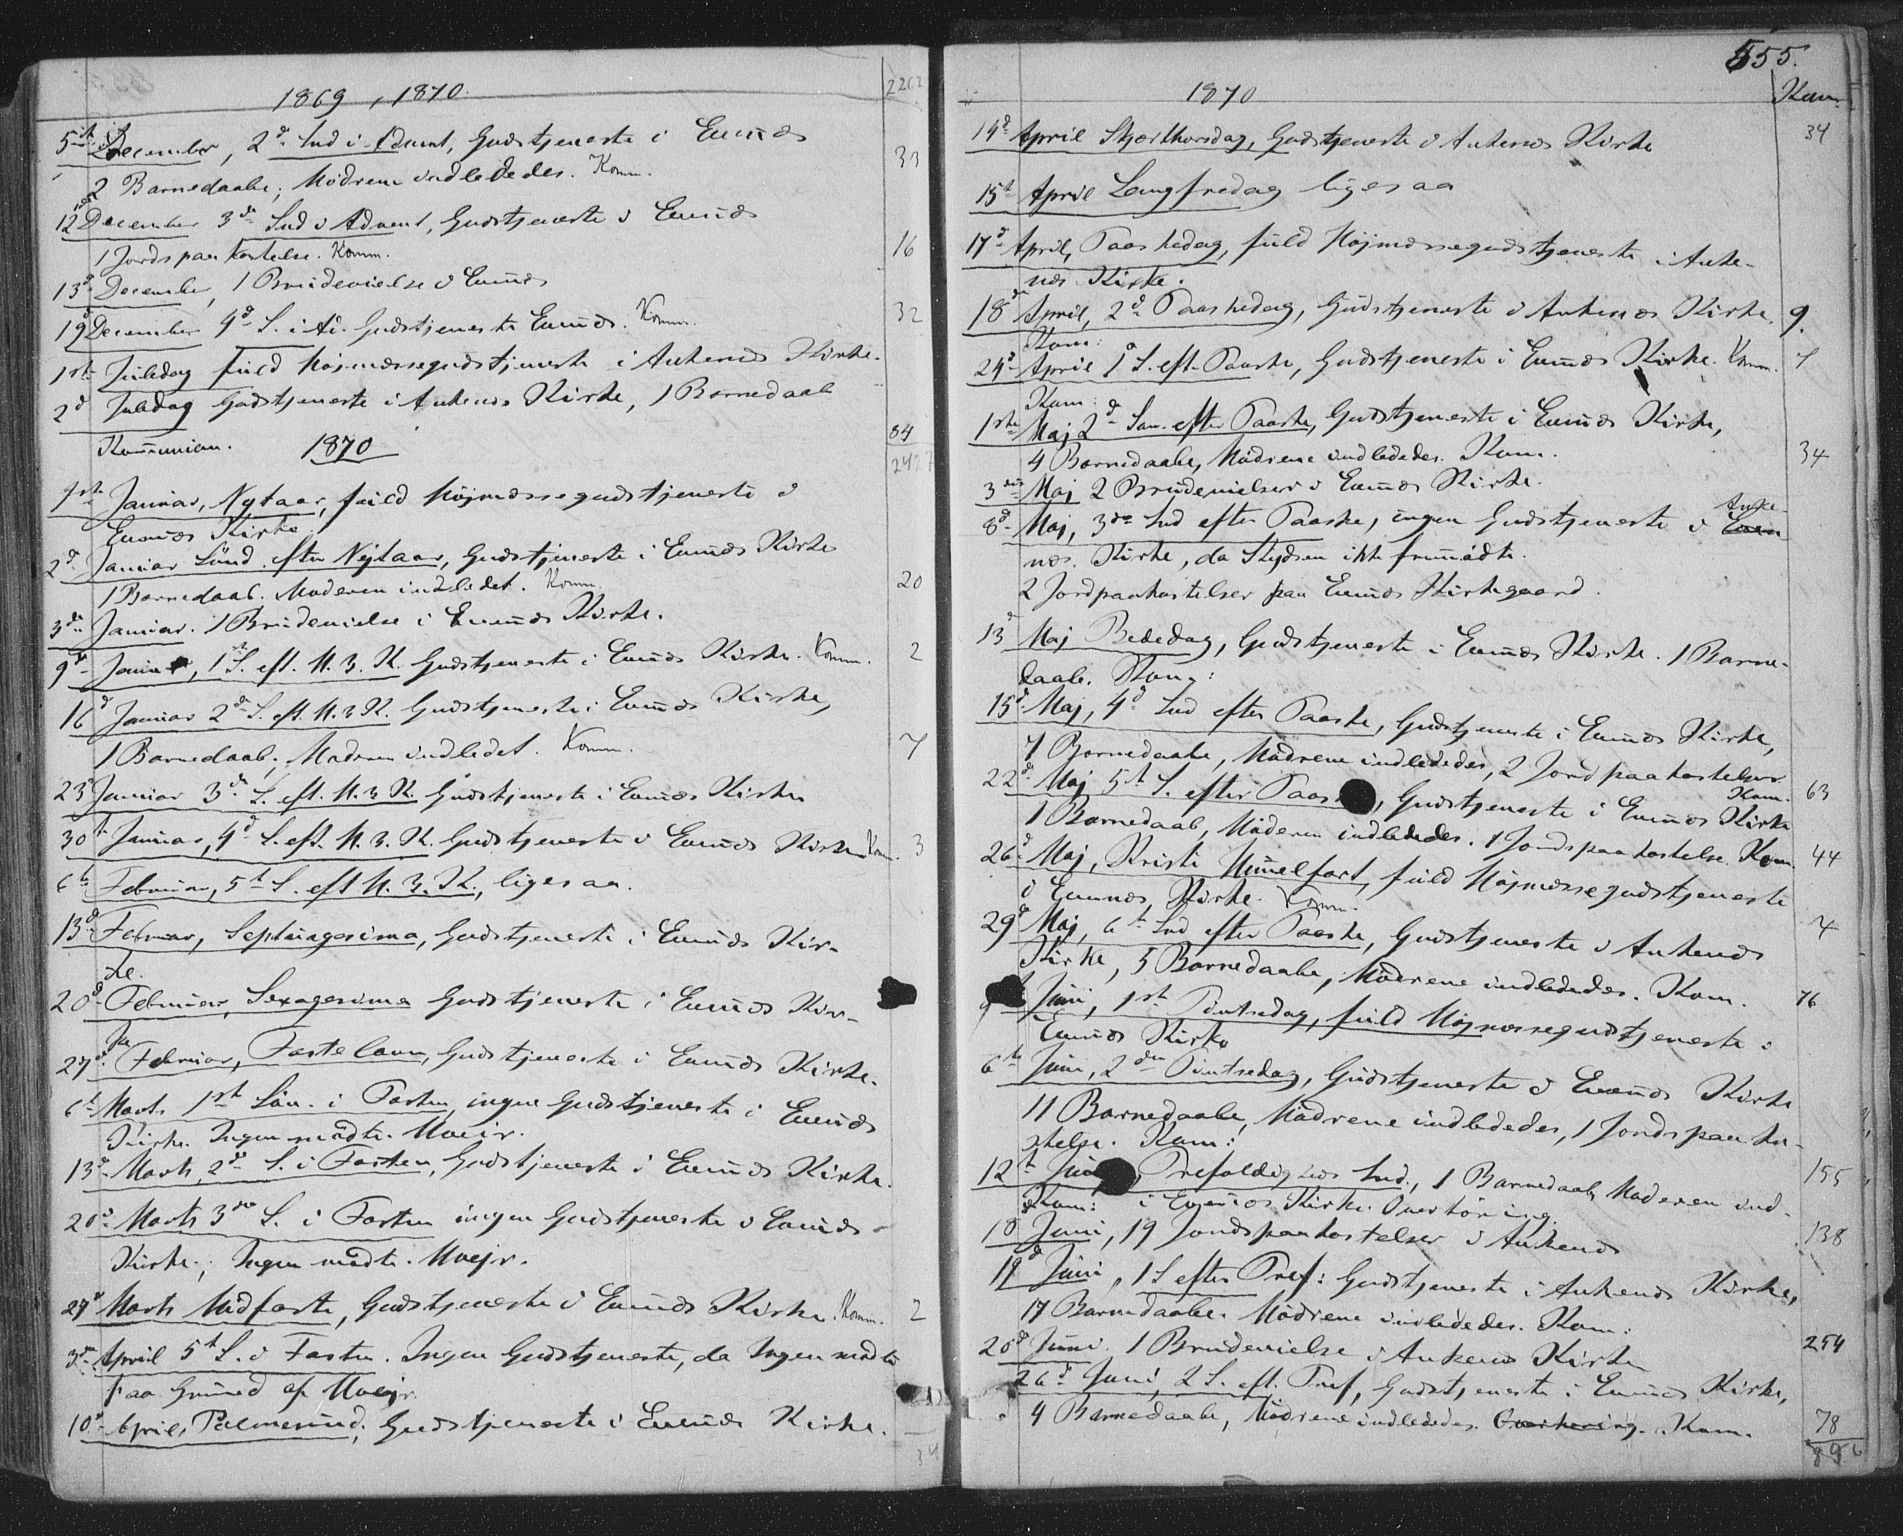 1869, 1870.
2262
5te December, 2d Snd i Advent, Gudstjeneste i Evenæs
2 Barnedaabe, Mødrene indlededes. Komm. 33
12 December 3die Snd i Advent, Gudstjeneste i Evenæs
1 Jordspaakastelse. Komm. 16
13d December, 1 Brudevielse i Evenæs
19 December 4d S. i Ad. Gudstjeneste Evenæs. Komm. 32
1ste Juledag fuld Højmessegudstjeneste i Ankenes Kirke.
2d Juledag Gudstjeneste i Ankenes Kirke, 1 Barnedaab
Kommunion. 84
1870
2427
1ste Januar, Nytaar, fuld Højmessegudstjeneste i
Evenæs Kirke
2d Januar Sønd. efter Nytaar, Gudstjeneste i Evenæs Kirke
1 Barnedaab. Moderen indledet. Komm. 20
3die Januar. 1 Brudevielse i Evenæs Kirke.
9de Januar, 1st S. eft. H. 3. K. Gudstjeneste i Evenæs Kirke. Komm. 2
16d Januar 2d S. eft. H. 3 K. Gudstjeneste i Evenæs Kirke,
1 Barnedaab, Moderen indledet. Komm. 7
23d Januar 3die S. eft. H. 3 K. Gudstjeneste i Evenæs Kirke
30te Januar, 4d S. eft. H. 3. K. Gudstjeneste i Evenæs Kirke Komm. 3
6te Februar, 5te S. eft H. 3. K., ligesaa.
13d Februar, Septuagesima, Gudstjeneste i Evenæs Kir-
ke.
20d Februar, Sexagesima Gudstjeneste i Evenæs Kir-
ke
27d Februar, Fastelavn, Gudstjeneste i Evenæs Kirke.
6te Marts 1ste Søn. i Fasten ingen Gudstjeneste i Evenæs
Kirke. Ingen mødte. Uveir.
13d Marts, 2d S. i Fasten, Gudstjeneste i Evenæs Kirke.
20d Marts 3die S. i Fasten ingen Gudstjeneste i Evenæs
Kirke; Ingen mødte. Uvejr.
27d Marts Midfaste, Gudstjeneste i Evenæs Kirke. Komm. 2
3die April 5te S. i Faste. Ingen Gudstjeneste, da Ingen mødte
paa Grund af Uvejr.
10d April, Palmesund, Gudstjeneste i Evenæs Kirke.
34
555.
1870
Kom.
14d April Skjærthorsdag, Gudstjeneste i Ankenes Kirke 34
15te April Langfredag ligesaa
17d April, Paaskedag, fuld Højmessegudstjeneste i Anke-
nes Kirke.
18d April, 2d Paaskedag, Gudstjeneste i Ankenes Kirke. 9.
Kom:
24d April 1st S. eft. Paaske, Gudstjeneste i Evenæs Kirke. Komm. 7
Kom:
1ste Maj 2d Søn. efter Paaske, Gudstjeneste i Evenæs Kirke,
4 Barnedaabe, Mødrene indlededes. Kom. 34
3die Maj 2 Brudevielser i Evenæs Kirke.
8d Maj, 3die Snd efter Paaske, ingen Gudstjeneste i Anke-
nes. Kirke, da Skydsen ikke fremmødte.
2 Jordpaakastelser paa Evenæs Kirkegaard.
13d Maj Bededag, Gudstjeneste i Evenæs Kirke. 1 Barne-
daab. Kom:
15d Maj, 4d Snd efter Paaske, Gudstjeneste i Evenæs Kirke,
7 Barnedaabe, Mødrene indlededes, 2 Jordpaakastelser
Kom. 63
22d Maj 5te S. efter Paaske, Gudstjeneste i Evenæs Kirke
1 Barnedaab, Moderen indlededes. 1 Jordspaakastelse. Kom. 44
26d Maj, Kristi Himmelfart, fuld Højmessegudstjeneste
i Evenæs Kirke. Komm. 7
29d Maj, 6te Snd efter Paaske, Gudstjeneste i Ankenes
Kirke, 5 Barnedaabe, Mødrene indlededes. Kom. 76
Juni, 1ste Pintsedag, fuld Højmessegudstjeneste i
Evenæs Kirke
6te Juni, 2den Pintsedag, Gudstjeneste i Evenæs Kirke
11 Barnedaabe, Mødrene indlededes, 1 Jordspaaka-
stelse. Kom:
12te Juni Trefoldigheds Snd., 1 Barnedaab Moderen ind- 155
Kom: i Evenæs Kirke. Overhøring.
18 Juni, 19 Jordspaakastelser i Ankenes 138
19d Juni, 1 S efter Tref: Gudstjeneste i Ankenes Kirke,
17 Barnedaabe. Mødrene indlededes. Kom:
20d Juni. 1 Brudevielse i Ankenes Kirke 254
26d Juni, 2 S. eft. Tref, Gudstjeneste i Evenæs Kirke,
4 Barnedaabe, Mødrene indlededes. Overhøring. Kom. 78
896